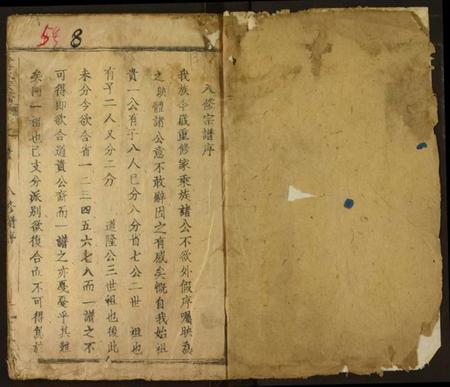 58
八修宗譜序
我族今歲重修家乘族諸公不欲外假序囑映為
之映體諸公意不敢辭因之有感矣慨自我始祖
貴一公有子八人已分八分省七公二世祖也
有子二人又分二分道隆公三世祖也後此
未分今欲合省一二三四五六七八而一譜之不
可得即欲合道貴公裔而一譜之亦戛戛乎其難
矣何一譜也已支分派別欲復合而不可得焉於
八修譜序